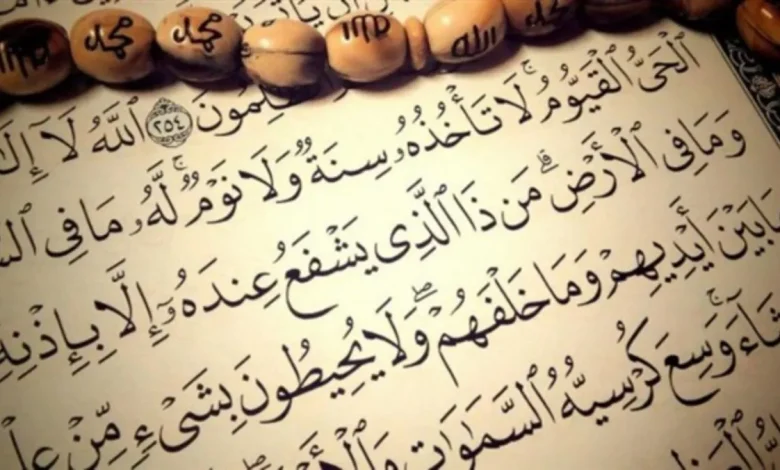 محمد محمد الله محمد
ظَّٰلِمُونَ ٢٥٤ ٱللَّهُ لَآ إِلَٰ
ٱلْحَىُّ ٱلْقَيُّومُ ۚ لَا تَأْخُذُهُۥ سِنَةٌ وَلَا نَوْمٌ ۚ لَّهُۥ مَا فِى
وَمَا فِى ٱلْأَرْضِ ۗ مَن ذَا ٱلَّذِى يَشْفَعُ عِندَهُۥٓ إِلَّا بِإِذْنِهِ
بَيْنَ أَيْدِيهِمْ وَمَا خَلْفَهُمْ ۖ وَلَا يُحِيطُونَ بِشَىْءٍ مِّنْ
شَآءَ ۚ وَسِعَ كُرْسِيُّهُ ٱلسَّمَٰوَٰتِ وَٱلْأَرْ